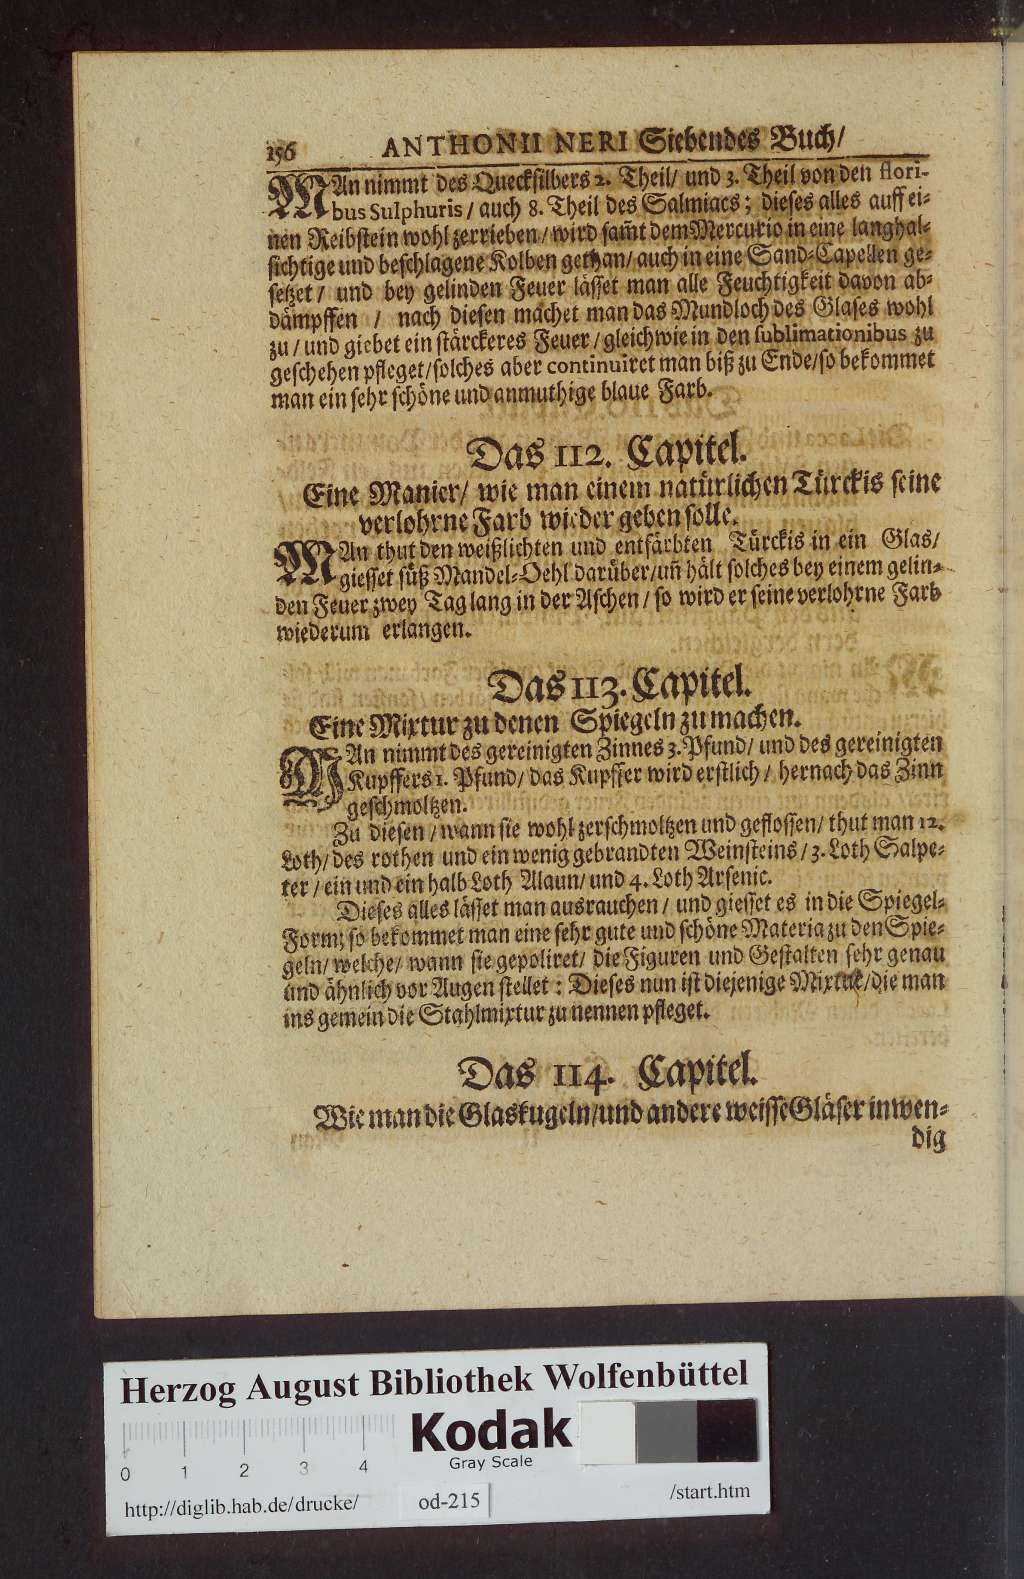 156 ANTHONII NERI Siebendes Buch/
MAn nimmt des Quecksilbers 2. Theil/ und 3. Theil von den flori-
bus Sulphuris/ auch 8. Theil des Salmiacs; dieses alles auff ei-
nen Reibstein wohl zerrieben/ wird sam̃t dem Mercurio in eine langhal-
sichtige und beschlagene Kolben gethan/ auch in eine Sand-Capellen ge-
setzet/ und bey gelinden Feuer lässet man alle Feuchtigkeit davon ab-
dämpffen / nach diesen machet man das Mundloch des Glases wohl
zu/ und giebet ein stärckeres Feuer/ gleichwie in den sublimationibus zu
geschehen pfleget/ solches aber continuiret man biß zu Ende/ so bekommet
man ein sehr schöne und anmuthige blaue Farb.
Das 112. Capitel.
Eine Manier/ wie man einem natürlichen Türckis seine
verlohrne Farb wieder geben solle.
MAn thut den weißlichten und entfärbten Türckis in ein Glas/
giesset süß Mandel-Oehl darüber/ uñ hält solches bey einem gelin-
den Feuer zwey Tag lang in der Aschen/ so wird er seine verlohrne Farb
wiederum erlangen.
Das 113. Capitel.
Eine Mixtur zu denen Spiegeln zu machen.
MAn nimmt des gereinigten Zinnes 3. Pfund/ und des gereinigten
Kupffers 1. Pfund/ das Kupffer wird erstlich/ hernach das Zinn
geschmoltzen.
Zu diesen/ wann sie wohl zerschmoltzen und geflossen/ thut man 12.
Loth/ des rothen und ein wenig gebrandten Weinsteins/ 3. Loth Salpe-
ter/ ein und ein halb Loth Alaun/ und 4. Loth Arsenic.
Dieses alles lässet man ausrauchen/ und giesset es in die Spiegel-
Form; so bekommet man eine sehr gute und schöne Materia zu den Spie-
geln/ welche/ wann sie gepoliret/ die Figuren und Gestalten sehr genau
und ähnlich vor Augen stellet: Dieses nun ist diejenige Mixtur/ die man
ins gemein die Stahlmixtur zu nennen pfleget.
Das 114. Capitel.
Wie man die Glaskugeln/ und andere weisse Gläser inwen-
dig
Herzog August Bibliothek Wolfenbüttel
Kodak
Gray Scale
0 1 2 3 4
http://diglib.hab.de/drucke/ od-215 /start.htm